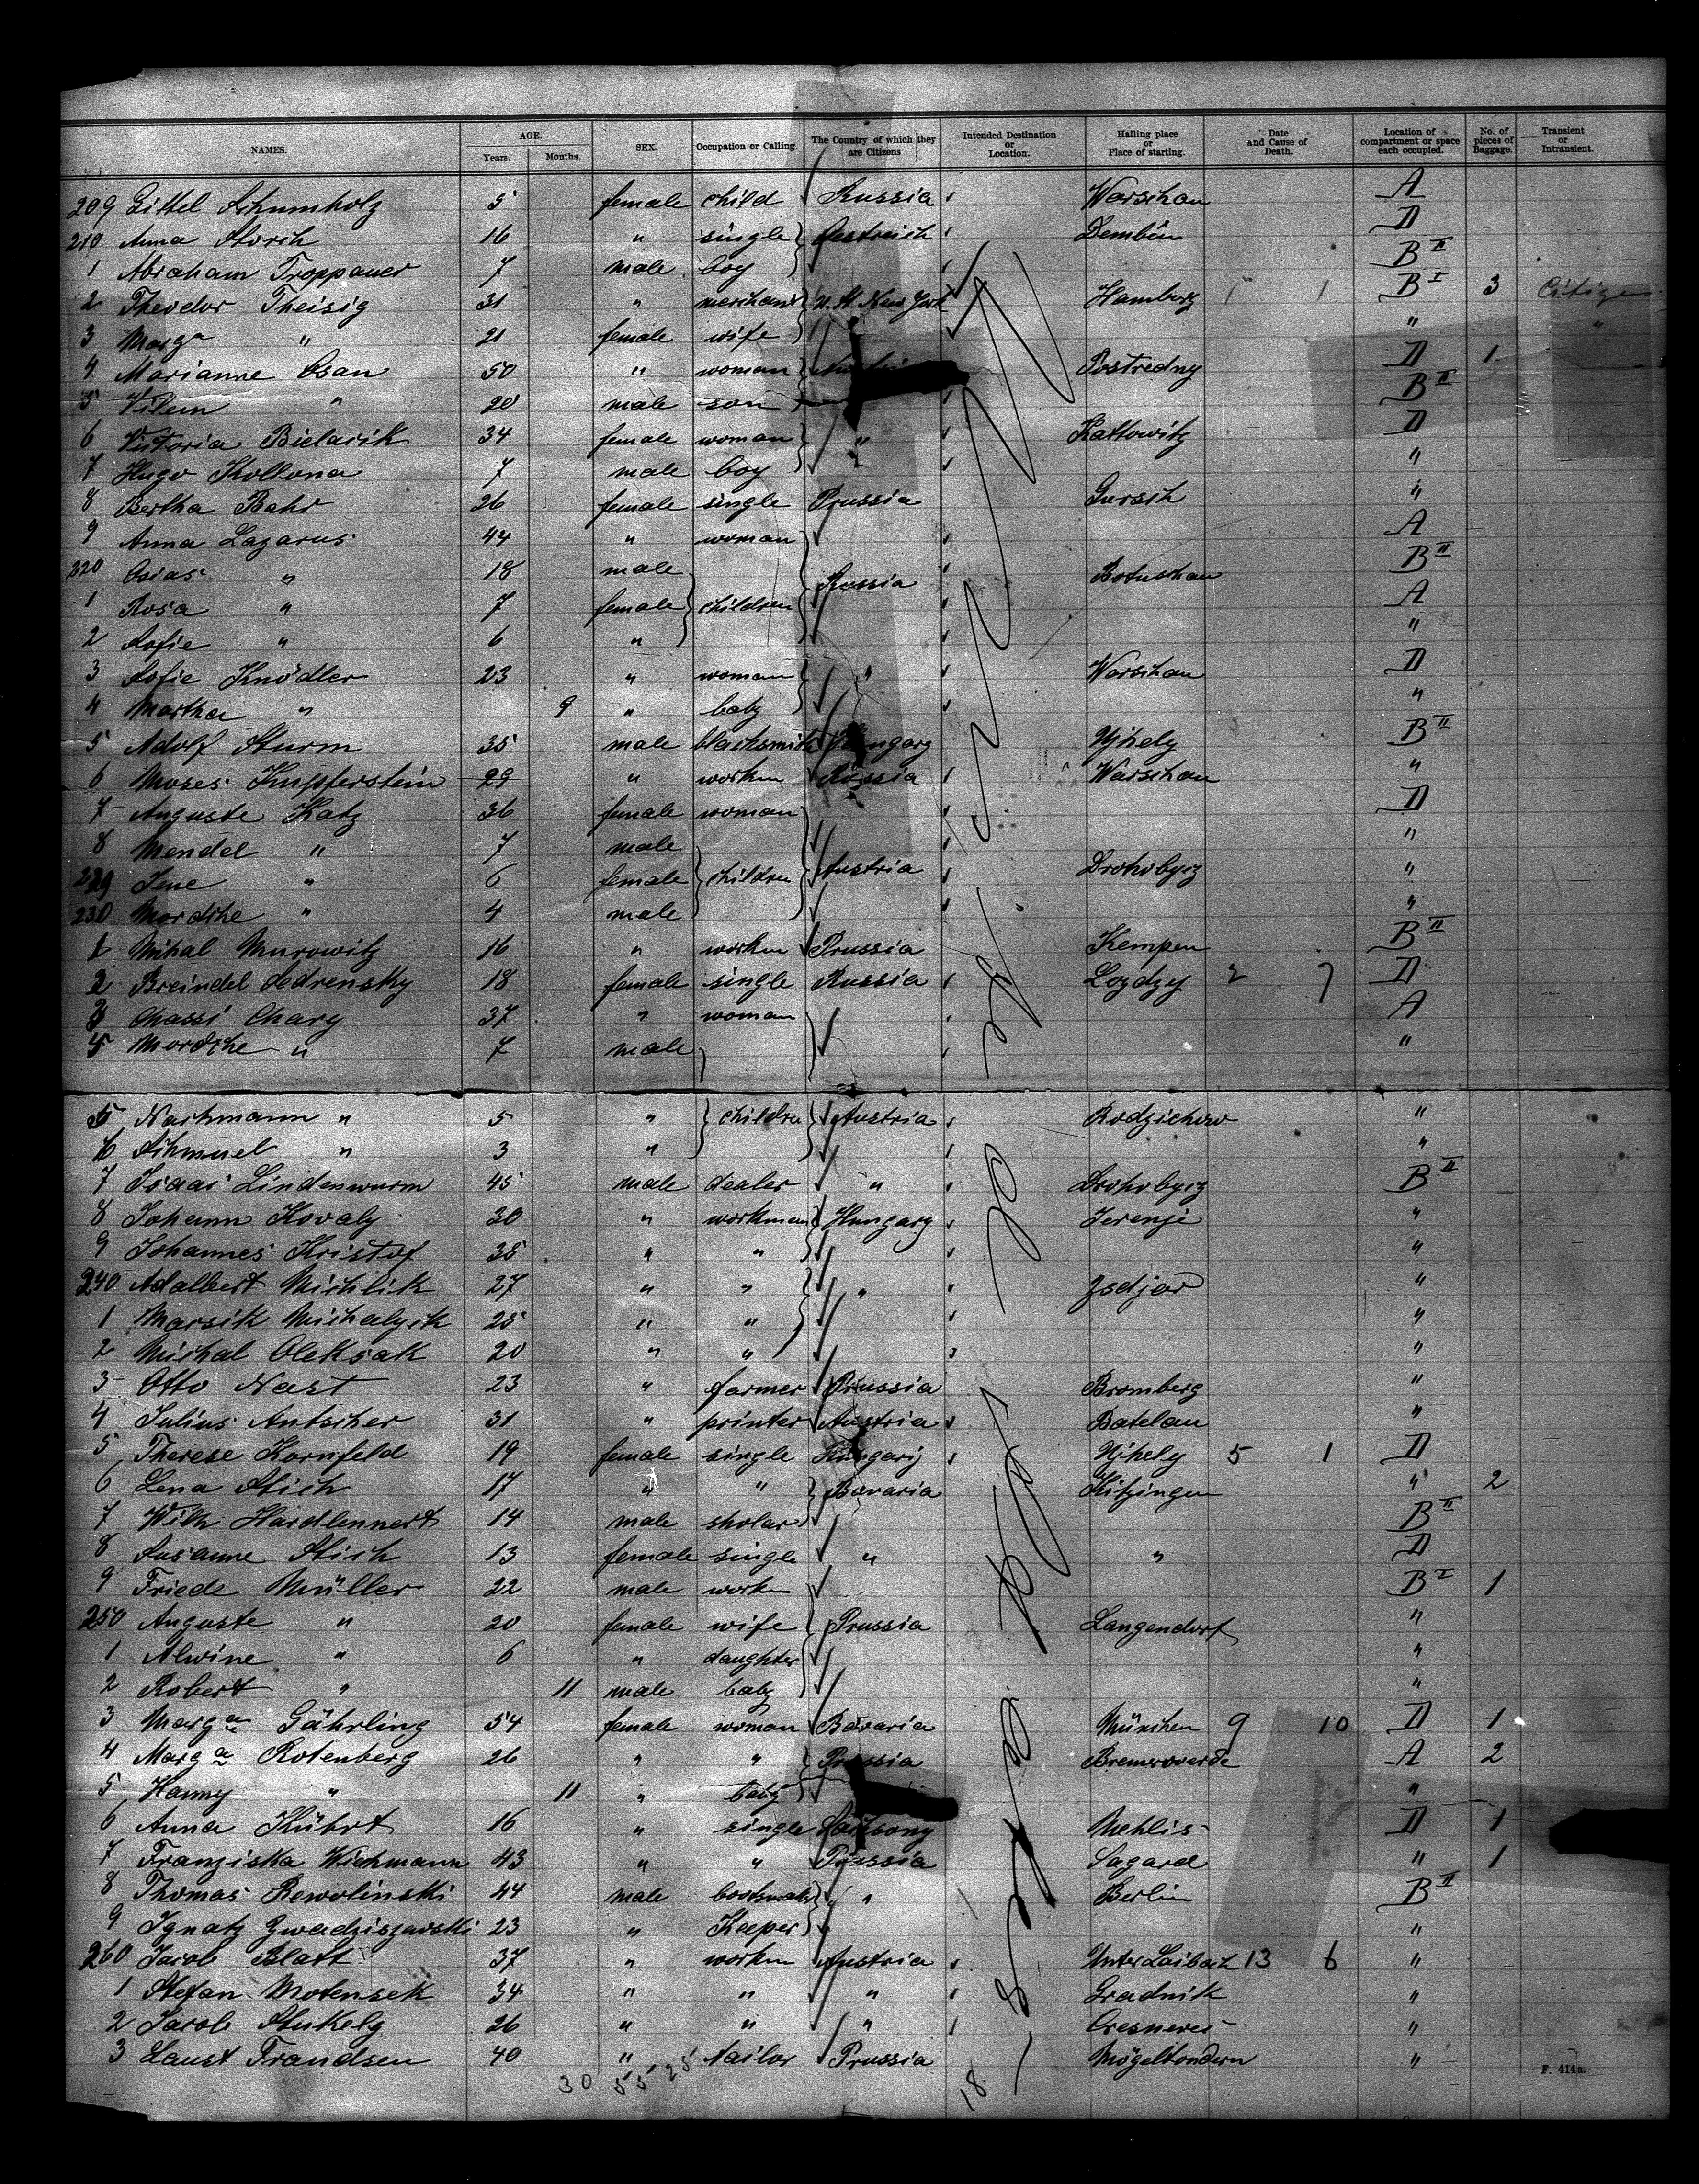 NAMES. AGE. Years. Months. SEX. Occupation or Calling. The Country of which they are Citizens Intended Destination or Location. Hailing place or Place of starting. Date and Cause of Death. Location of compartment or space each occupied. No. of pieces of Baggage. Transient or Intransient.
209 Gittel Schumholz 5 female child Russia Warschau A
210 Anna Storch 16 " single Oestreich Dembin D
1 Abraham Troppauer 7 male boy B II
2 Theodor Theisig 31 " merchant U. St. New York Hamburg 1 1 B I 3 Citizen
3 Marga " 21 female wife " "
4 Marianne Osan 50 " woman Postredny D 1
5 Vilem " 20 male son B II
6 Victoria Bielacik 34 female woman " Kattowitz D
7 Hugo Kollona 7 male boy "
8 Bertha Bahr 26 female single Prussia Gursch "
9 Anna Lazarus 44 " woman A
220 Osias " 18 male Russia Botuschan B II
1 Rosa " 7 female children A
2 Sofie " 6 " "
3 Sofie Knödler 23 " woman " Warschau D
4 Martha " 9 " baby "
5 Adolf Sturm 35 male blacksmith Hungary Ujhely B II
6 Moses Kupferstein 29 " workm Russia Warschau "
7 Auguste Katz 36 female woman D
8 Mendel " 7 male "
229 Jene " 6 female children Austria Drohobycz "
230 Mordche " 4 male "
1 Michal Murowitz 16 " workm Prussia Kempen B II
2 Breindel Sedrensky 18 female single Russia Loydzey 2 7 D
3 Chassi Charg 37 " woman A
4 Mordche " 7 male "
5 Nachmann " 5 " children Austria Rodzichow "
6 Schmuel " 3 " "
7 Isaac Lindenwurm 45 male dealer " Drohobycz B II
8 Johann Kovaly 30 " workman Hungary Jerenje "
9 Johannes Kristof 38 " " "
240 Adalbert Michlik 27 " " " Zsdjar "
1 Marsik Michalycik 25 " " "
2 Michal Oleksak 20 " " "
3 Otto Nast 23 " farmer Prussia Bromberg "
4 Julius Antscher 31 " printer Austria Batelau "
5 Therese Kornfeld 19 female single Hungary Ujhely 5 1 D
6 Lena Stich 17 " " Bavaria Kitzingen " 2
7 Wilh Hardlennert 14 male sholar B II
8 Susanne Stich 13 female single " " D
9 Friede Müller 22 male workm B I 1
250 Auguste " 20 female wife Prussia Langendorf "
1 Alwine " 6 " daughter "
2 Robert " 11 male baby "
3 Marga Gährling 54 female woman Bavaria München 9 10 D 1
4 Marga Rotenberg 26 " " Prussia Bremervoerde A 2
5 Hanny " 11 " baby "
6 Anna Kührt 16 " single Sachsony Mehlis D 1
7 Franziska Wichmann 43 " " Prussia Sagard " 1
8 Thomas Rewolinski 44 male bootmaker " Berlin B II
9 Ignatz Gwadziszewski 23 " Keeper "
260 Jacob Blatt 37 " workm Austria Unter Laibach 13 6 "
1 Stefan Motensek 34 " " " Gradnik "
2 Jacob Stukely 26 " " " Cresneres "
3 Laust Frandsen 40 " tailor Prussia Mögeltondern "
30 55 25 18
F. 414a.